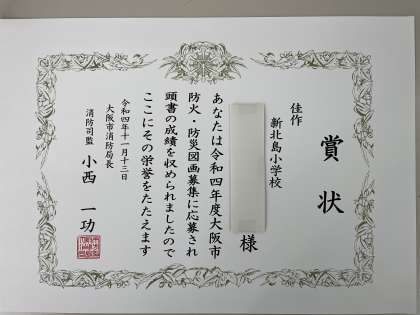 賞状
佳作
新北島小学校
様
あなたは令和四年度大阪市
防火・防災図画募集に応募され
頭書の成績を収められましたので
ここにその栄誉をたたえます
令和四年十一月十三日
大阪市消防局長
消防司監 小西一功